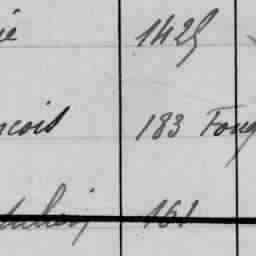 ie 1425
ncois 183 Foug
161